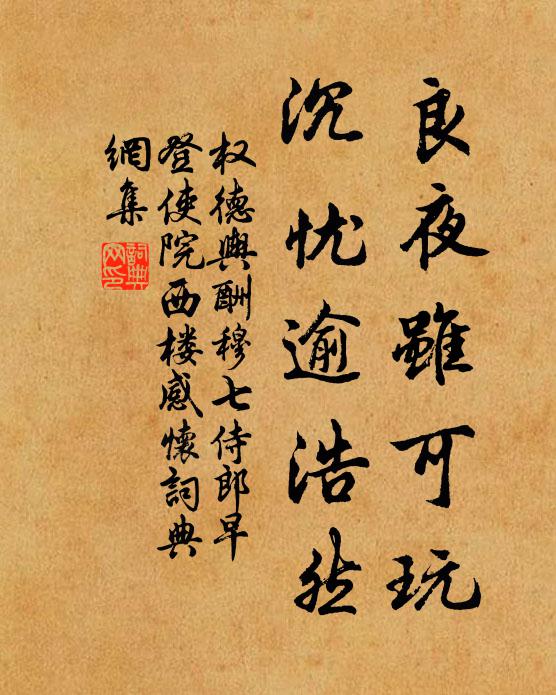 良夜雖可玩
沉忧逾浩然
权德輿酬穆七侍郎早
登使院西楼感懷詞典
網集
詞典
网印